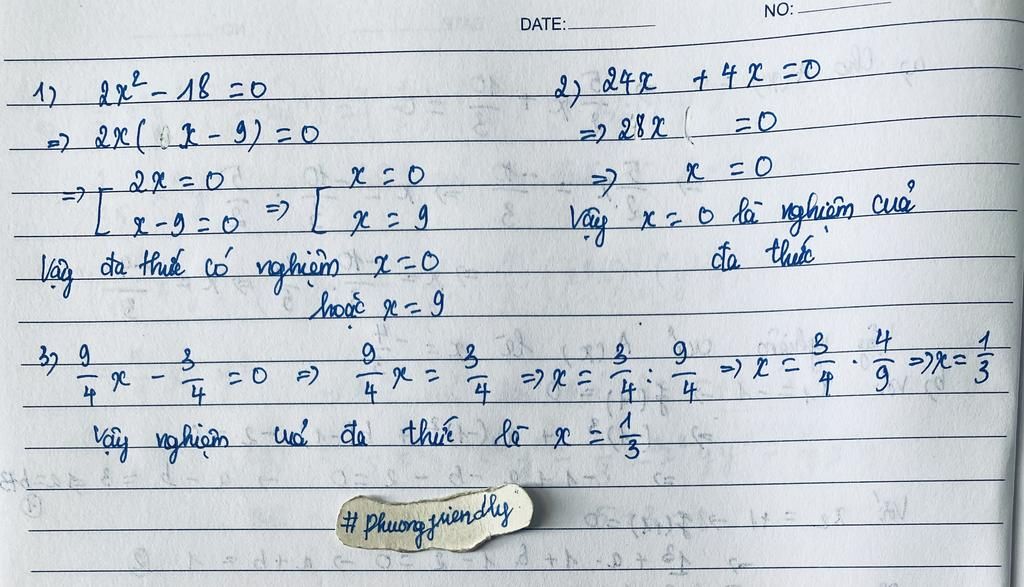 DATE: NO:
1) 2x² - 18 = 0
=> 2x( x - 9) = 0
=> [ 2x = 0 => [ x = 0
x - 9 = 0 x = 9
Vậy đa thức có nghiệm x = 0
hoặc x = 9
2) 24x + 4x = 0
=> 28x ( = 0
=> x = 0
Vậy x = 0 là nghiệm cuả
đa thức
3) 9/4 x - 3/4 = 0 => 9/4 x = 3/4 => x = 3/4 : 9/4 => x = 3/4 . 4/9 => x = 1/3
Vậy nghiệm cuả đa thức là x = 1/3
#phuongfriendly